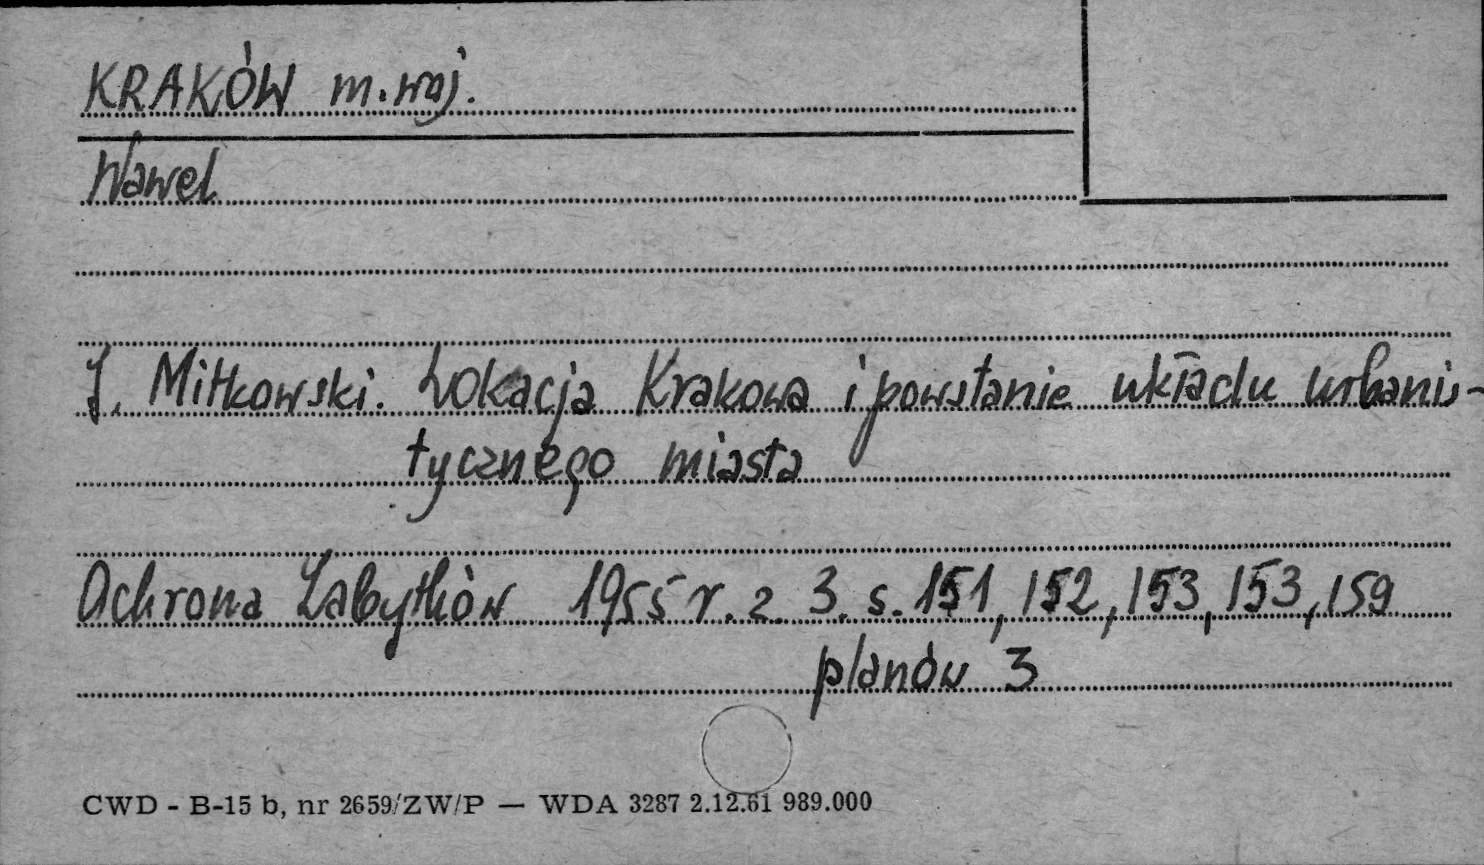 KRAKÓW m. woj.
Wawel
J. Mitkowski. Lokacja Krakowa i powstanie układu urbanis-
tycznego miasta
Ochrona Zabytków 1955 r. z. 3. s. 151, 152, 153, 153, 159
planów 3
CWD - B-15 b, nr 2659/ZW/P — WDA 3287 2.12.61 989.000